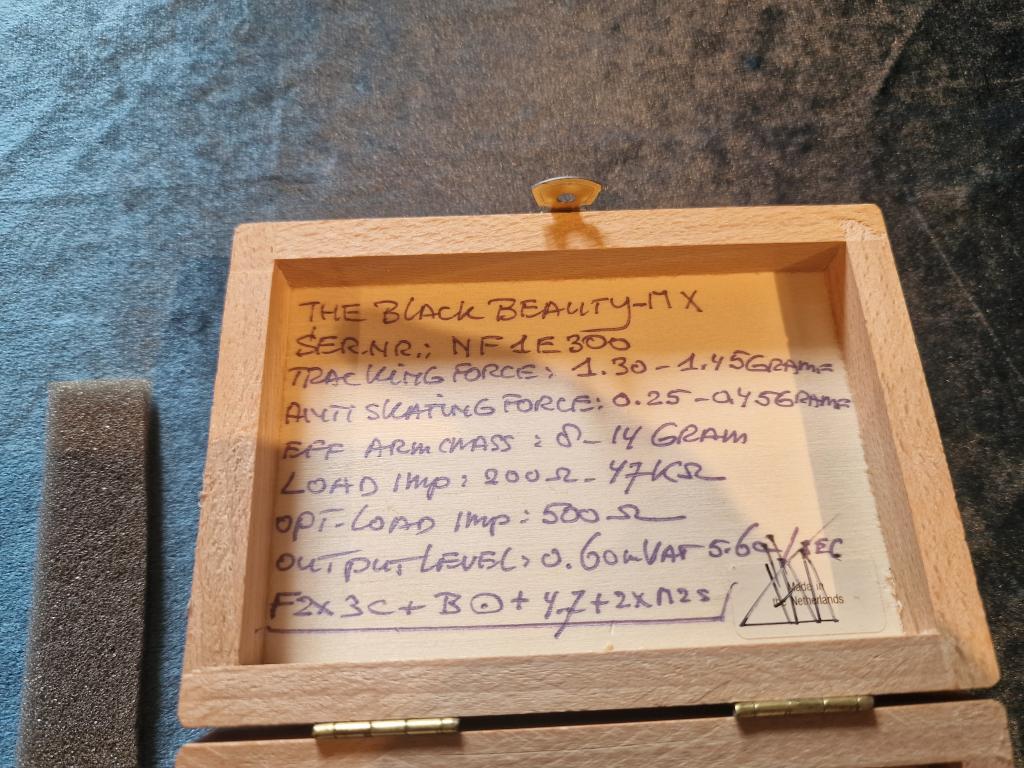 THE BLACK BEAUTY-MX
SER.NR.: NF1E300
TRACKING FORCE: 1.30-1.45GRAM
ANTI SKATING FORCE: 0.25-0.45GRAM
EFF ARM MASS: 8-14 GRAM
LOAD IMP: 200Ω-47KΩ
OPT-LOAD IMP: 500Ω
OUTPUT LEVEL: 0.60mV AT 5.6 /SEC
F2x3C+B⊙+4.7+2x
Made in
the Netherlands